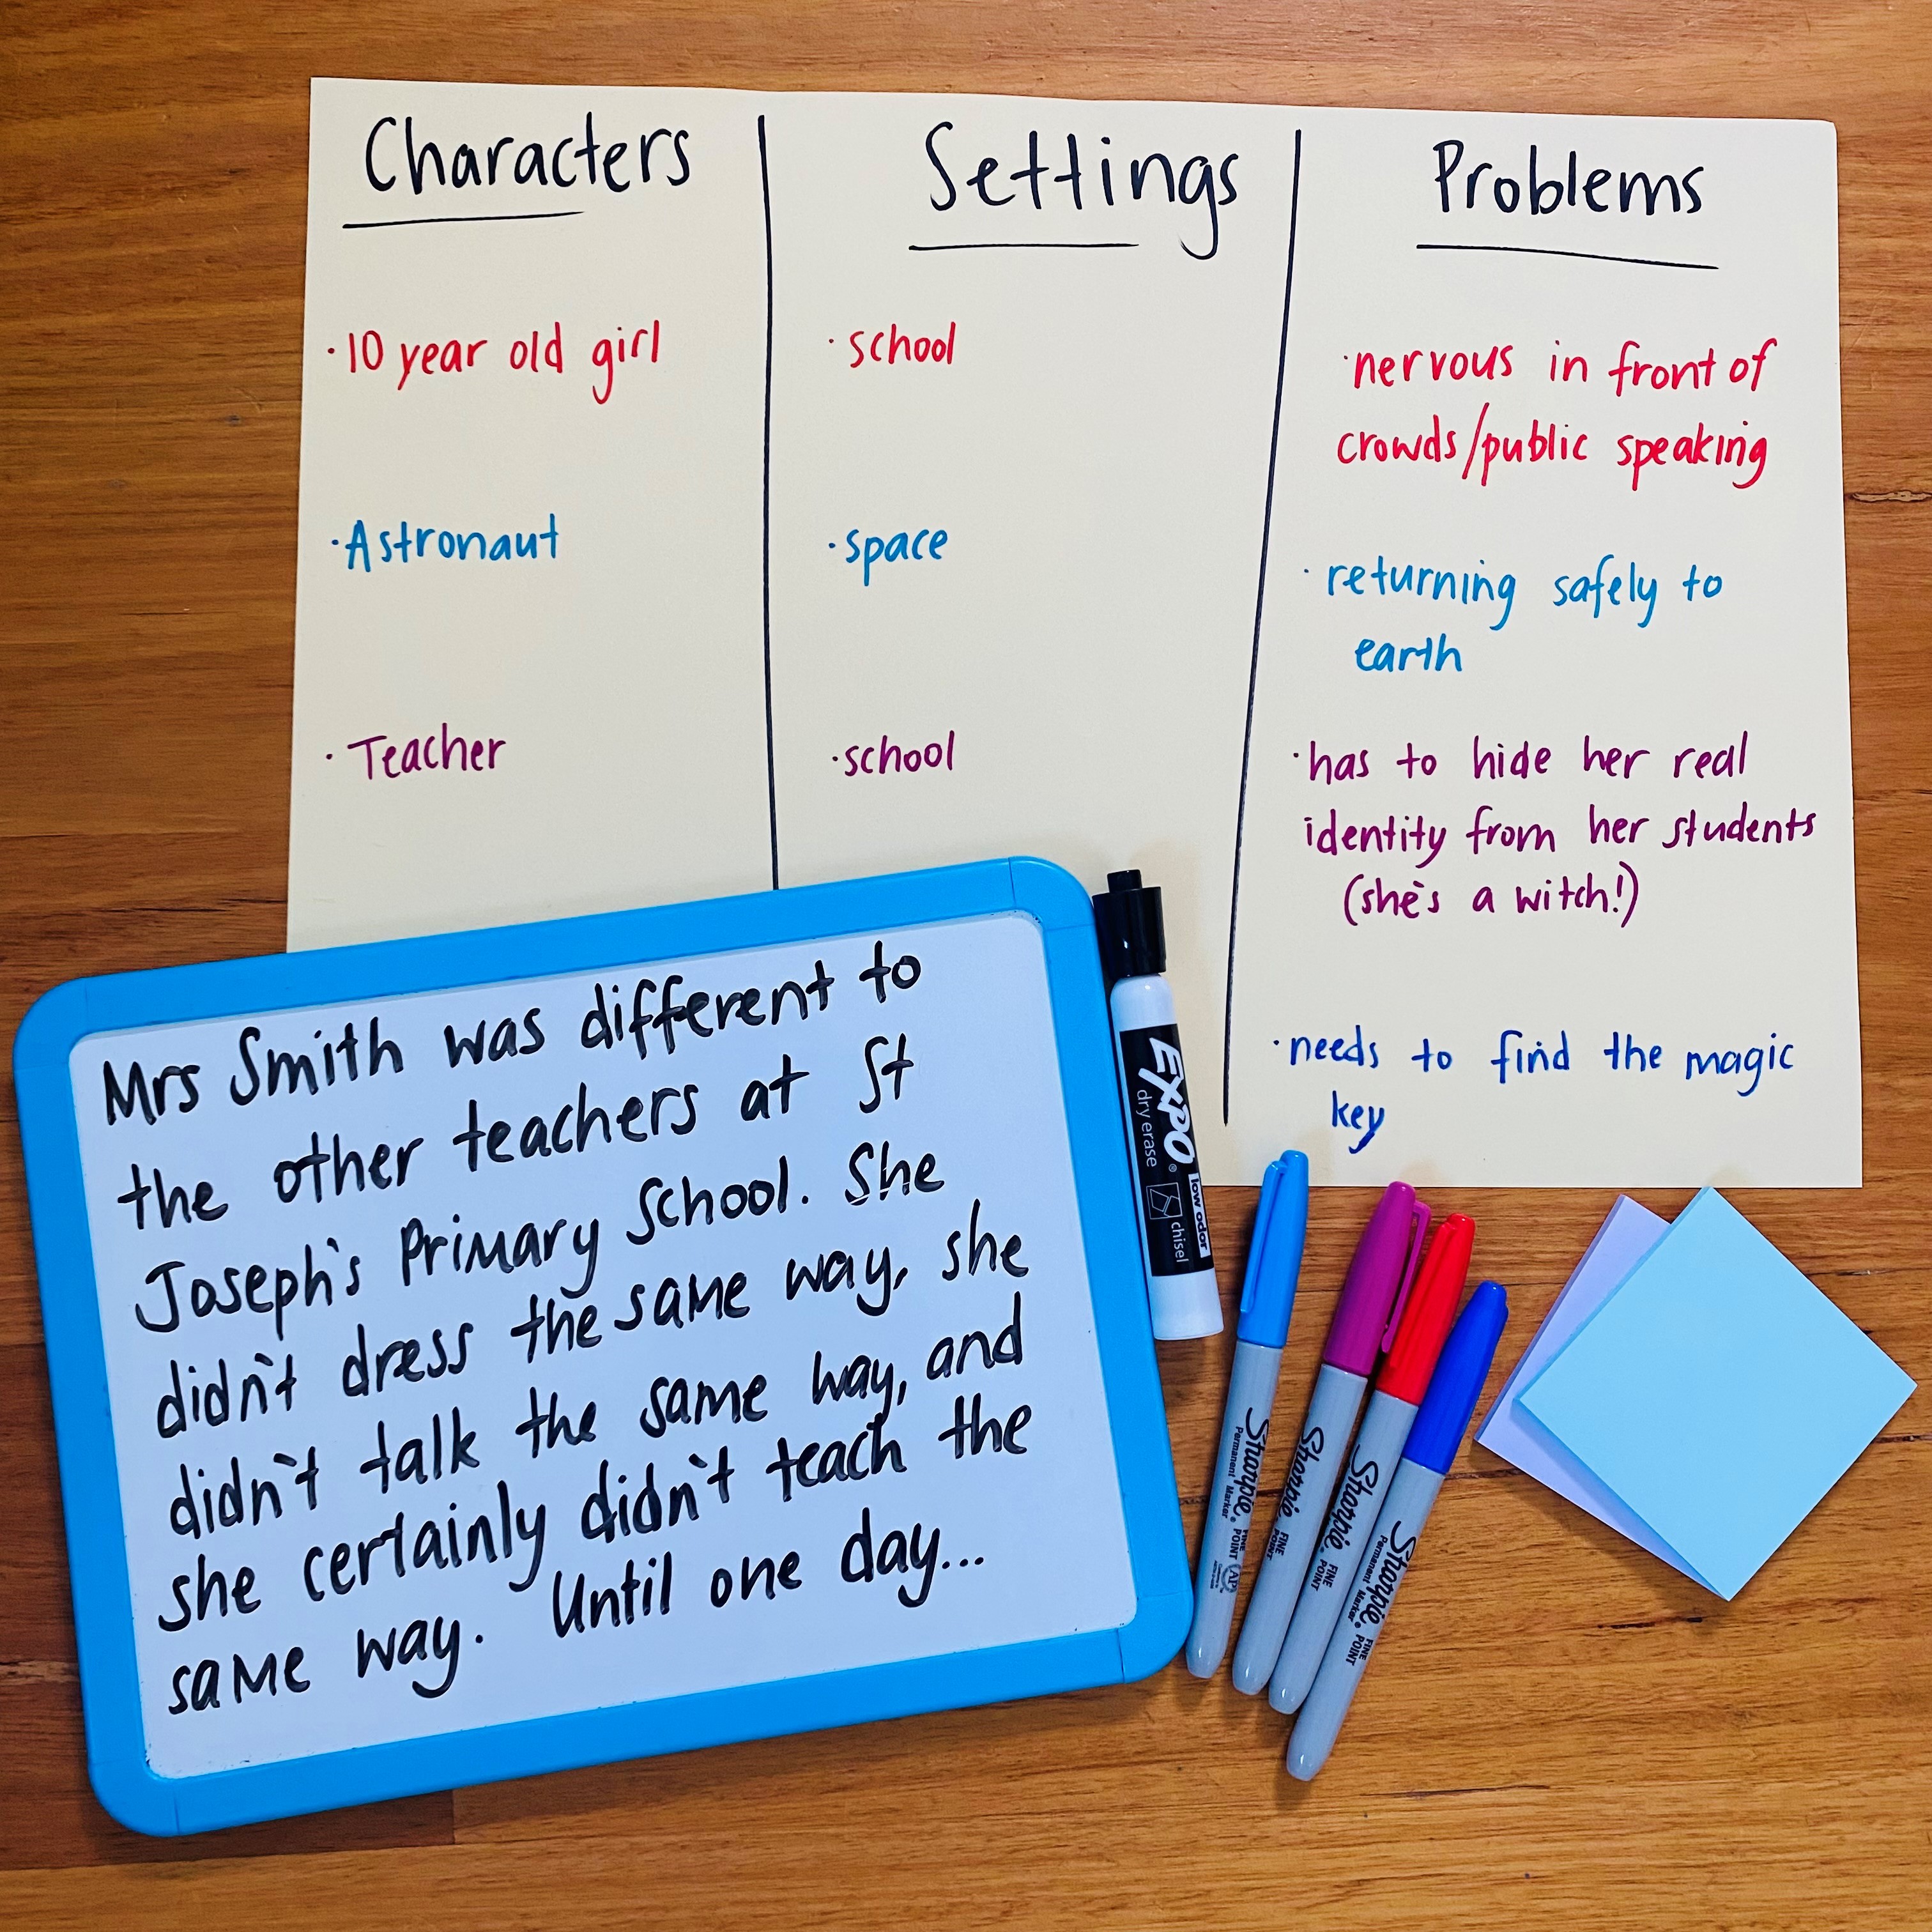 Characters
Settings
Problems
·10 year old girl
·school
·nervous in front of
crowds/public speaking
·Astronaut
·space
·returning safely to
earth
·Teacher
·school
·has to hide her real
identity from her students
(she's a witch!)
·needs to find the magic
key
Mrs Smith was different to
the other teachers at St
Joseph's Primary School. She
didn't dress the same way, she
didn't talk the same way, and
she certainly didn't teach the
same way. Until one day...
EXPO®
low odor
dry erase
chisel
Sharpie.
Permanent Marker
FINE POINT
AP
Sharpie.
FINE POINT
Sharpie.
FINE POINT
Sharpie.
Permanent Marker
FINE POINT